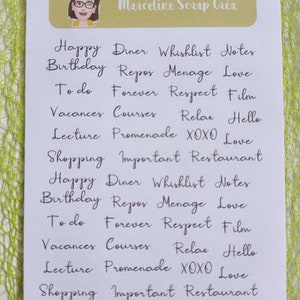 Marceline Scrap Créa
Happy Diner Whishlist Notes
Birthday Repos Menage Love
To do Forever Respect Film
Vacances Courses Relax Hello
Lecture Promenade XOXO Love
Shopping Important Restaurant
Happy Diner Whishlist Notes
Birthday Repos Menage Love
To do Forever Respect Film
Vacances Courses Relax Hello
Lecture Promenade XOXO Love
Shopping Important Restaurant